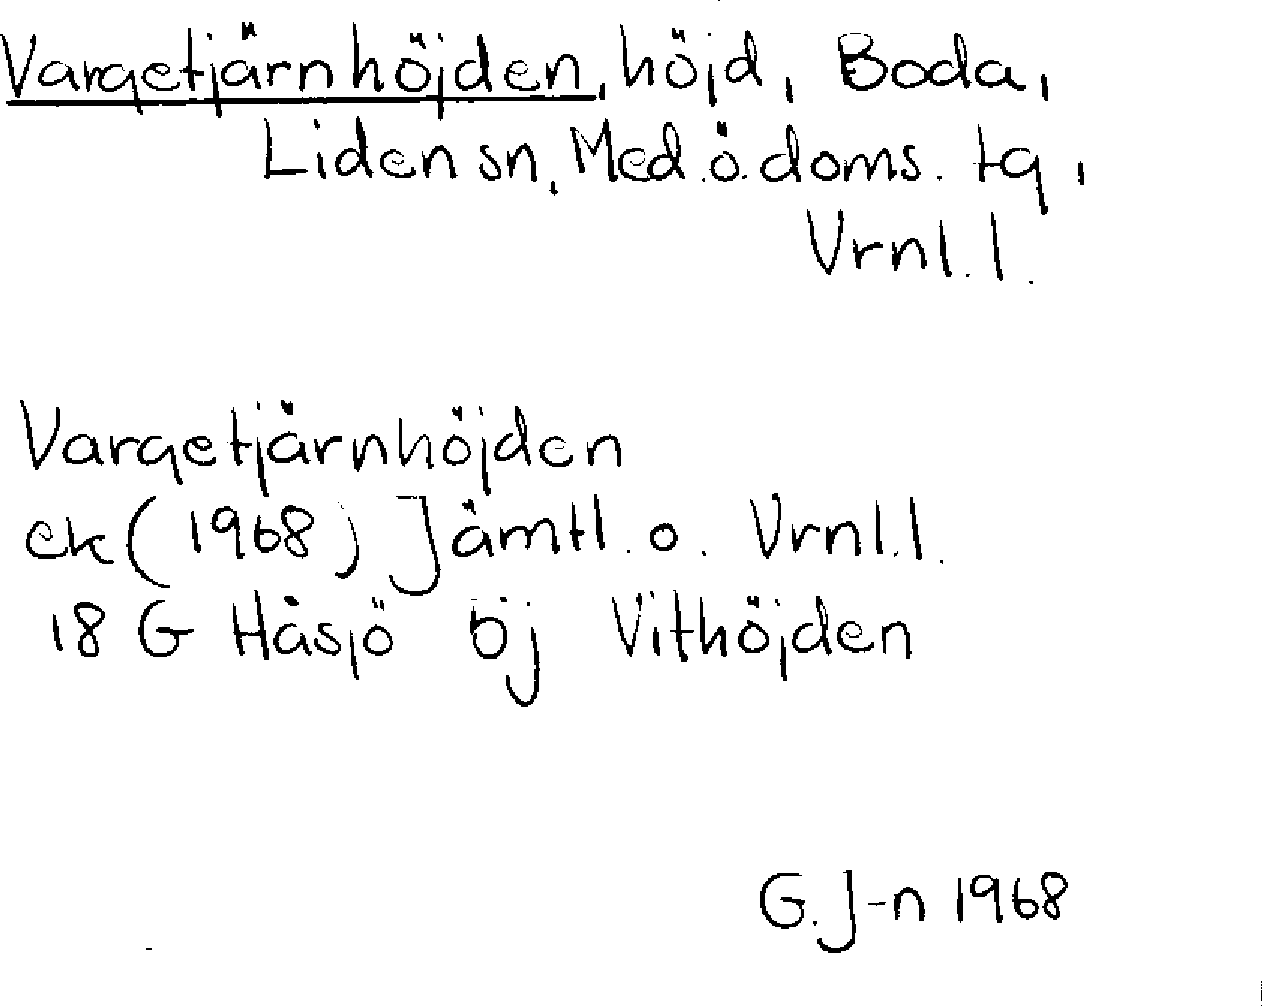 Vargetjärnhöjden, höjd, Boda,
Liden sn, Med. ö. doms. tg,
Vrnl. l.
Vargetjärnhöjden
ek (1968) Jämtl. o. Vrnl. l.
18 G Håsjö öj Vithöjden
G. J-n 1968